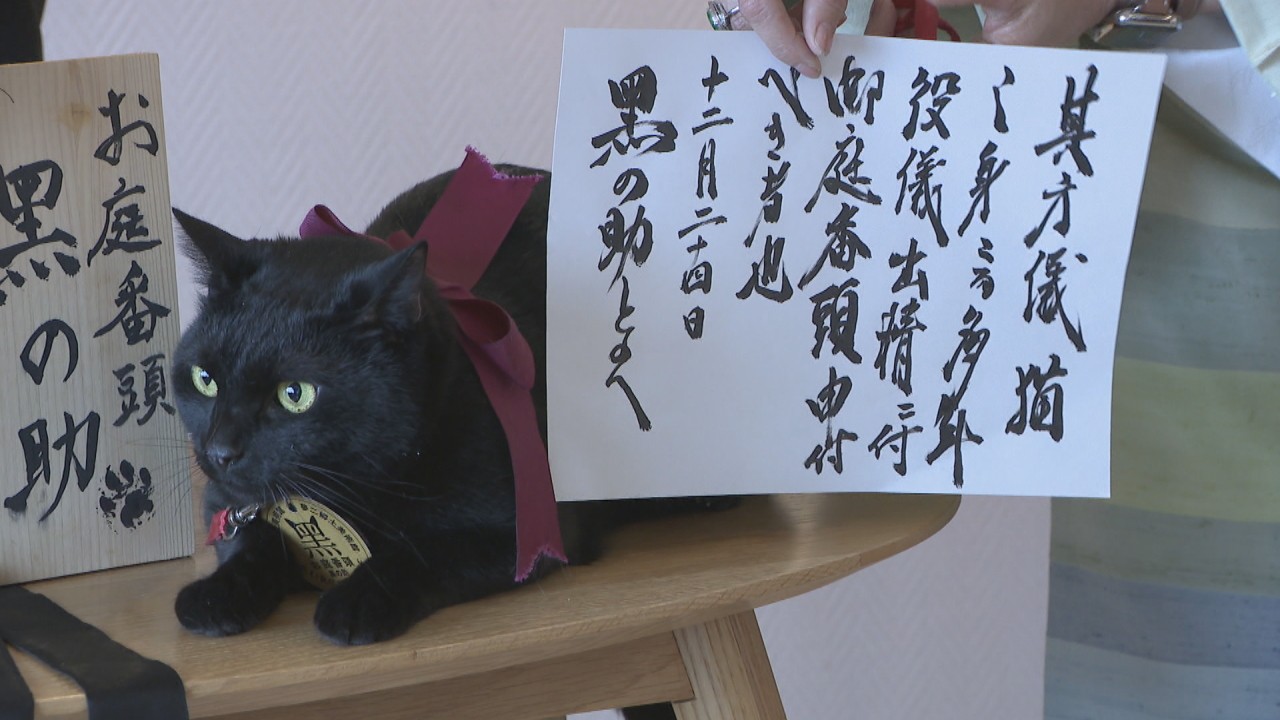 其方儀猫
之身ニ而多年
役儀出精ニ付
御庭番頭申付
べき者也
十二月二十四日
黒の助とのへ
お庭番頭
黒の助
黒